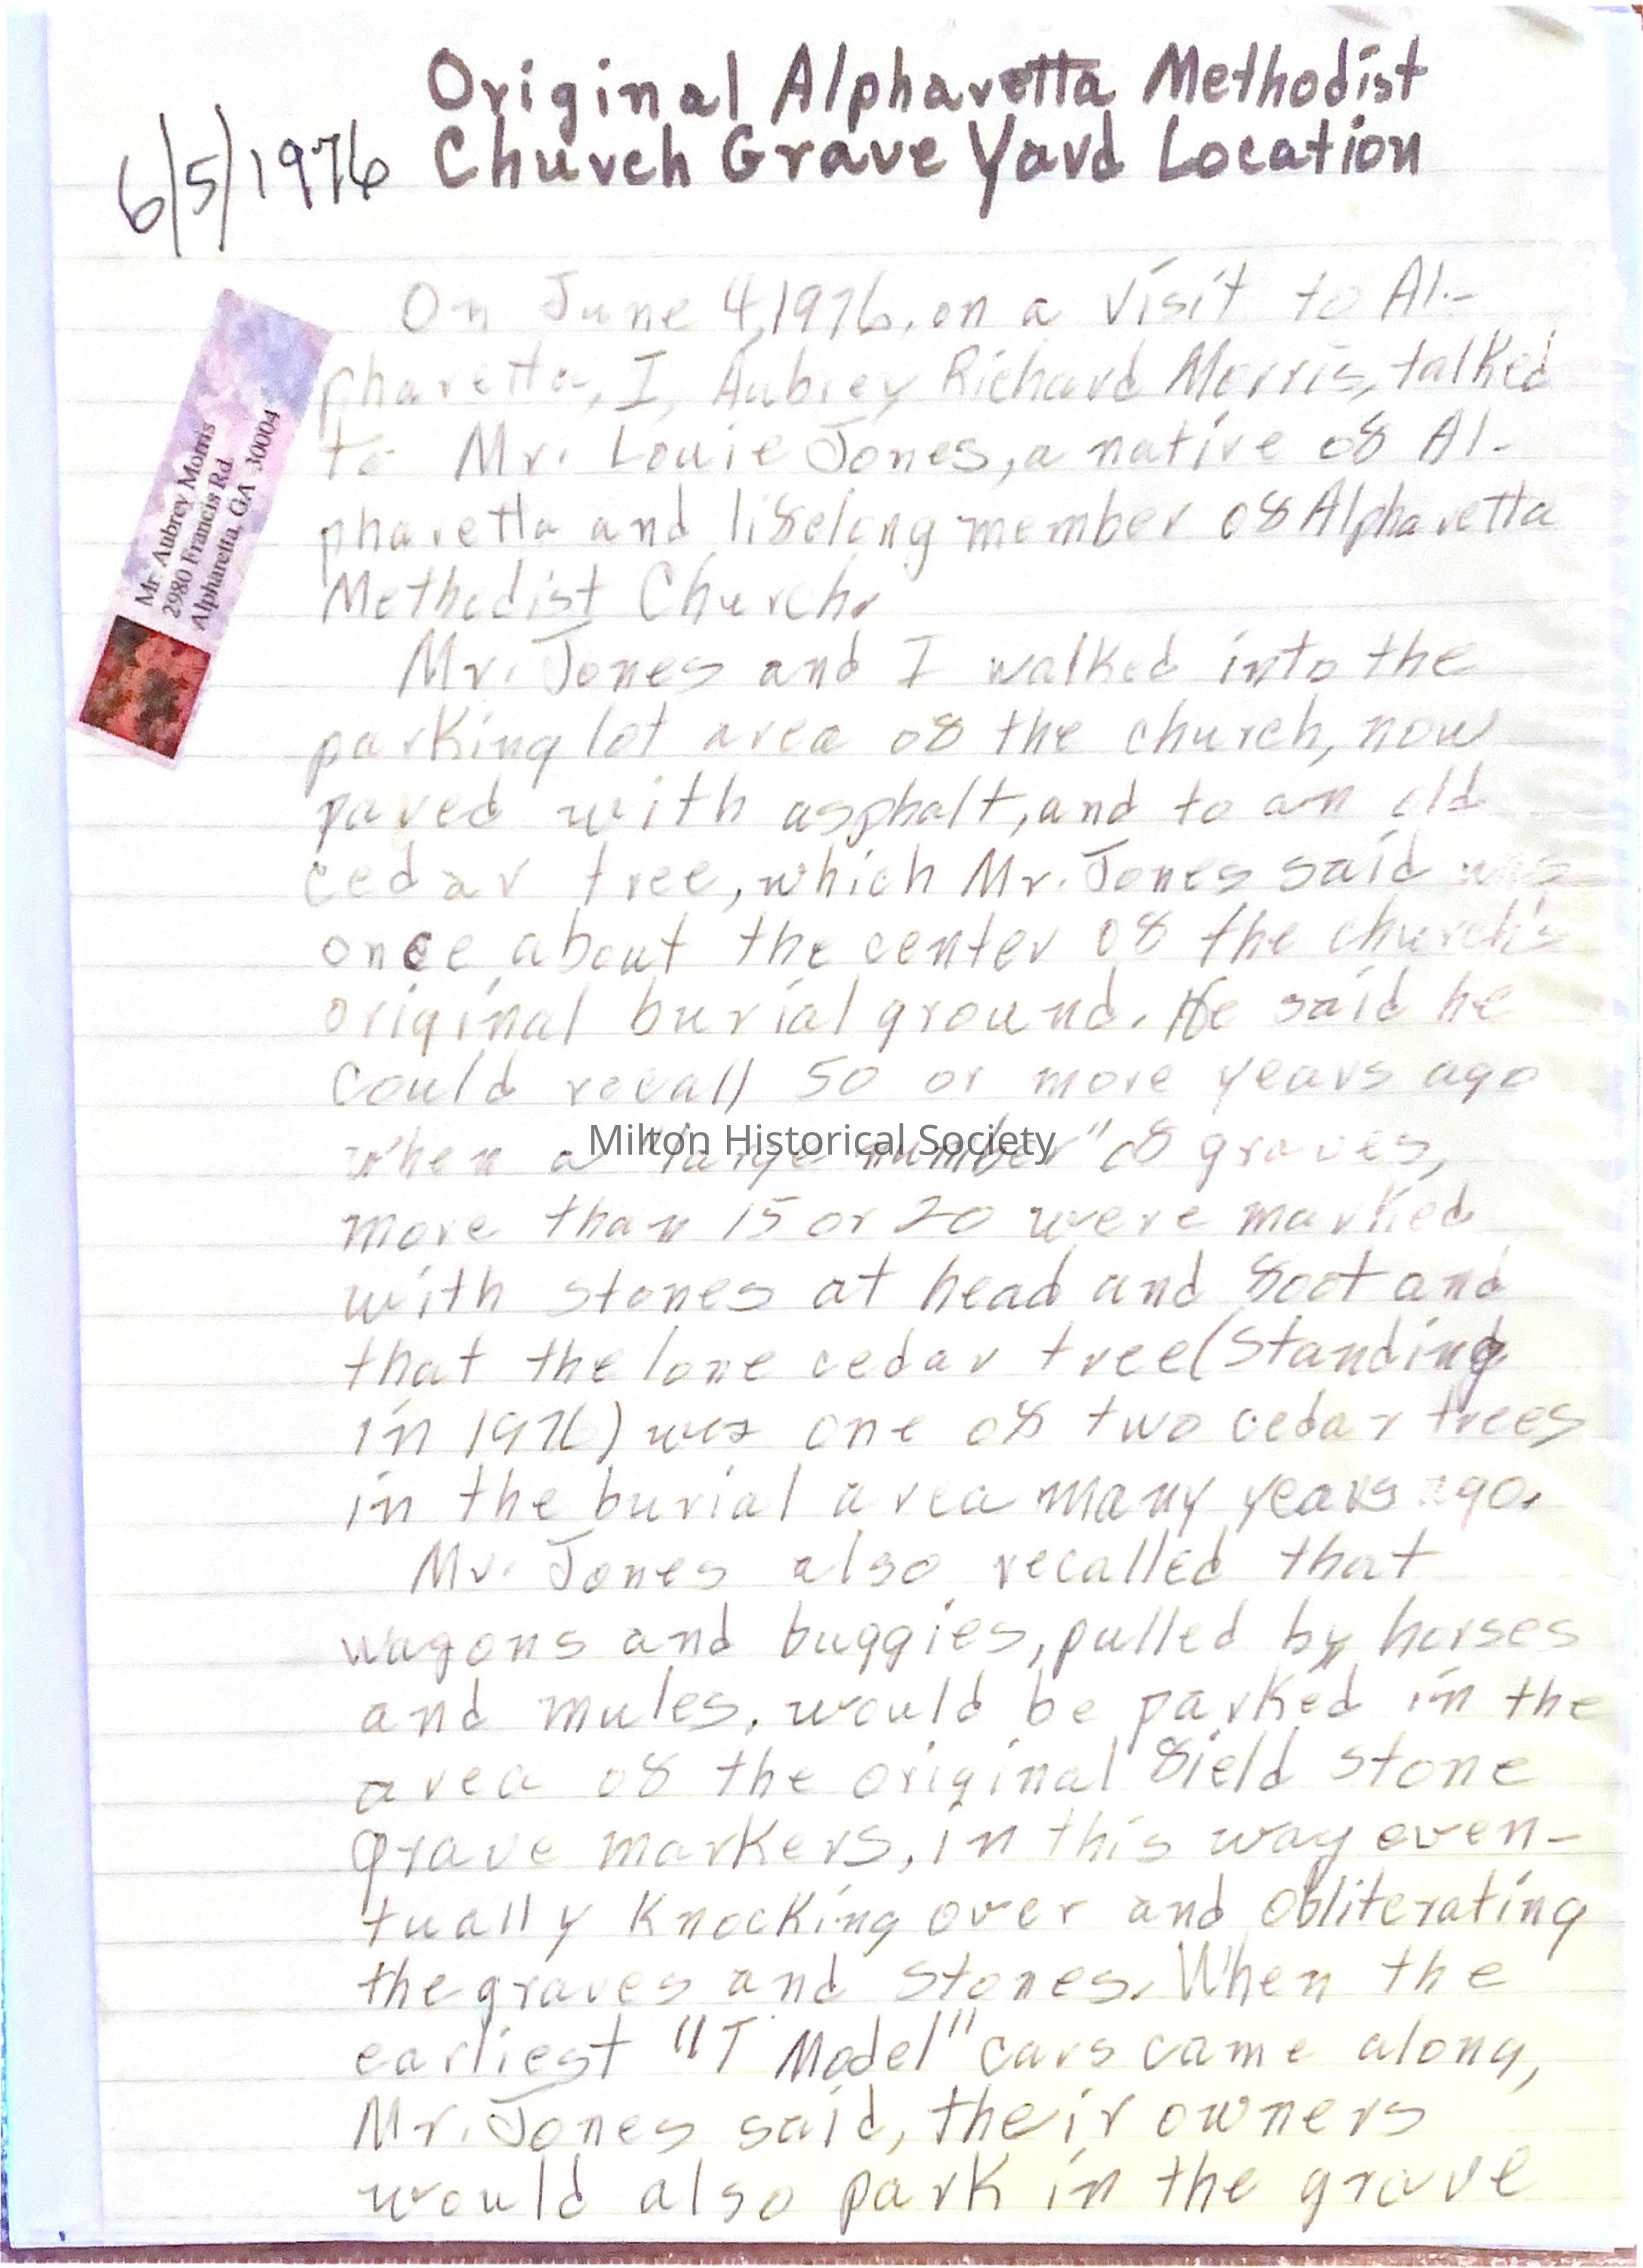 Original Alpharetta Methodist
6/5/1976 Church Grave Yard Location
On June 4, 1976, on a visit to Al-
pharetta, I, Aubrey Richard Morris, talked
to Mr. Louie Jones, a native of Al-
pharetta and lifelong member of Alpharetta
Methodist Church.
Mr. Aubrey Morris
2980 Francis Rd.
Alpharetta, GA 30004
Mr. Jones and I walked into the
parking lot area of the church, now
paved with asphalt, and to an old
cedar tree, which Mr. Jones said was
once about the center of the church's
original burial ground. He said he
could recall 50 or more years ago
when a "large number" of graves,
Milton Historical Society
more than 15 or 20 were marked
with stones at head and foot and
that the lone cedar tree (standing
in 1976) was one of two cedar trees
in the burial area many years ago.
Mr. Jones also recalled that
wagons and buggies, pulled by horses
and mules, would be parked in the
area of the original field stone
grave markers, in this way even-
tually knocking over and obliterating
the graves and stones. When the
earliest "T Model" cars came along,
Mr. Jones said, their owners
would also park in the grave